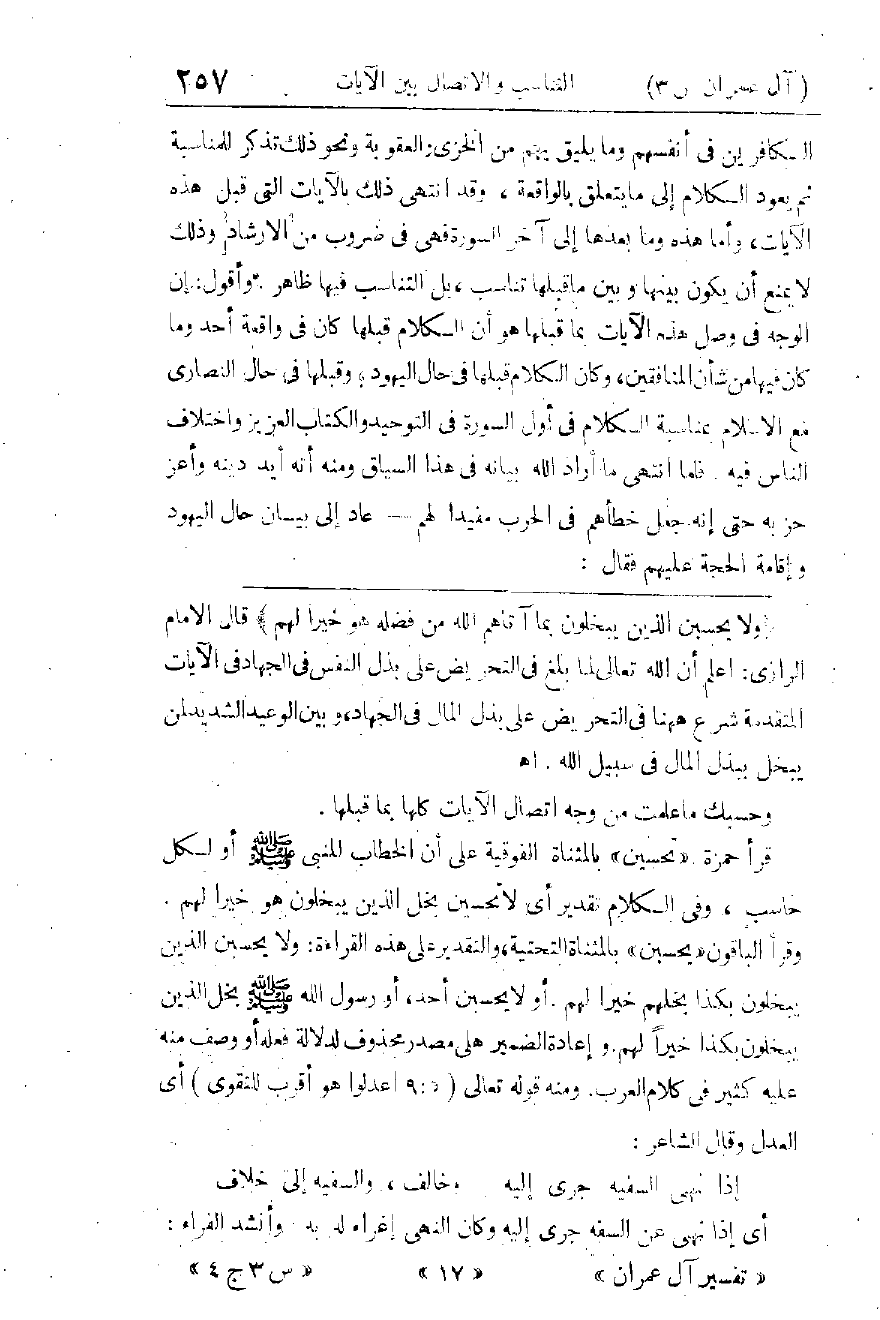 ( آل عمران س ٣) التناسب والاتصال بين الآيات ٢٥٧
الكافرين فى أنفسهم وما يليق بهم من الخزى والعقوبة ونحو ذلك تذكر للمناسبة
ثم يعود الكلام إلى ما يتعلق بالواقعة ، وقد انتهى ذلك بالآيات التى قبل هذه
الآيات، وأما هذه وما بعدها إلى آخر السورة فهى فى ضروب من الارشاد وذلك
لا يمنع أن يكون بينها وبين ما قبلها تناسب ، بل التناسب فيها ظاهر . وأقول: إن
الوجه فى وصل هذه الآيات بما قبلها هو أن الكلام قبلها كان فى واقعة أحد وما
كان فيها من شأن المنافقين، وكان الكلام قبلها فى حال اليهود ، وقبلها فى حال النصارى
مع الاسلام بمناسبة الكلام فى أول السورة فى التوحيد والكتاب العزيز واختلاف
الناس فيه . فلما انتهى ما أراد الله بيانه فى هذا السياق ومنه أنه أيد دينه وأعز
حزبه حتى إنه جعل خطأهم فى الحرب مفيدا لهم — عاد إلى بيان حال اليهود
وإقامة الحجة عليهم فقال :
﴿ولا يحسبن الذين يبخلون بما آتاهم الله من فضله هو خيرا لهم ﴾ قال الامام
الرازى: اعلم أن الله تعالى لما بلغ فى التحريض على بذل النفس فى الجهاد فى الآيات
المتقدمة شرع ههنا فى التحريض على بذل المال فى الجهاد، وبين الوعيد الشديد لمن
يبخل ببذل المال فى سبيل الله . اهـ
وحسبك ما علمت من وجه اتصال الآيات كلها بما قبلها .
قرأ حمزة «تحسبن» بالمثناة الفوقية على أن الخطاب للنبى ﷺ أو لكل
حاسب ، وفى الكلام تقدير أى لا تحسبن بخل الذين يبخلون هو خيرا لهم .
وقرأ الباقون «يحسبن» بالمثناة التحتية، والتقدير على هذه القراءة: ولا يحسبن الذين
يبخلون بكذا بخلهم خيرا لهم . أو لا يحسبن أحد، أو رسول الله ﷺ بخل الذين
يبخلون بكذا خيراً لهم. وإعادة الضمير على مصدر محذوف لدلالة فعله أو وصف منه
عليه كثير فى كلام العرب. ومنه قوله تعالى ( ٥ : ٩ اعدلوا هو أقرب للتقوى ) أى
العدل وقال الشاعر :
إذا نهى السفيه جرى إليه وخالف ، والسفيه إلى خلاف
أى إذا نهى عن السفه جرى إليه وكان النهى إغراء له به وأنشد الفراء :
« تفسير آل عمران » « ١٧ » « س ٣ ج ٤ »